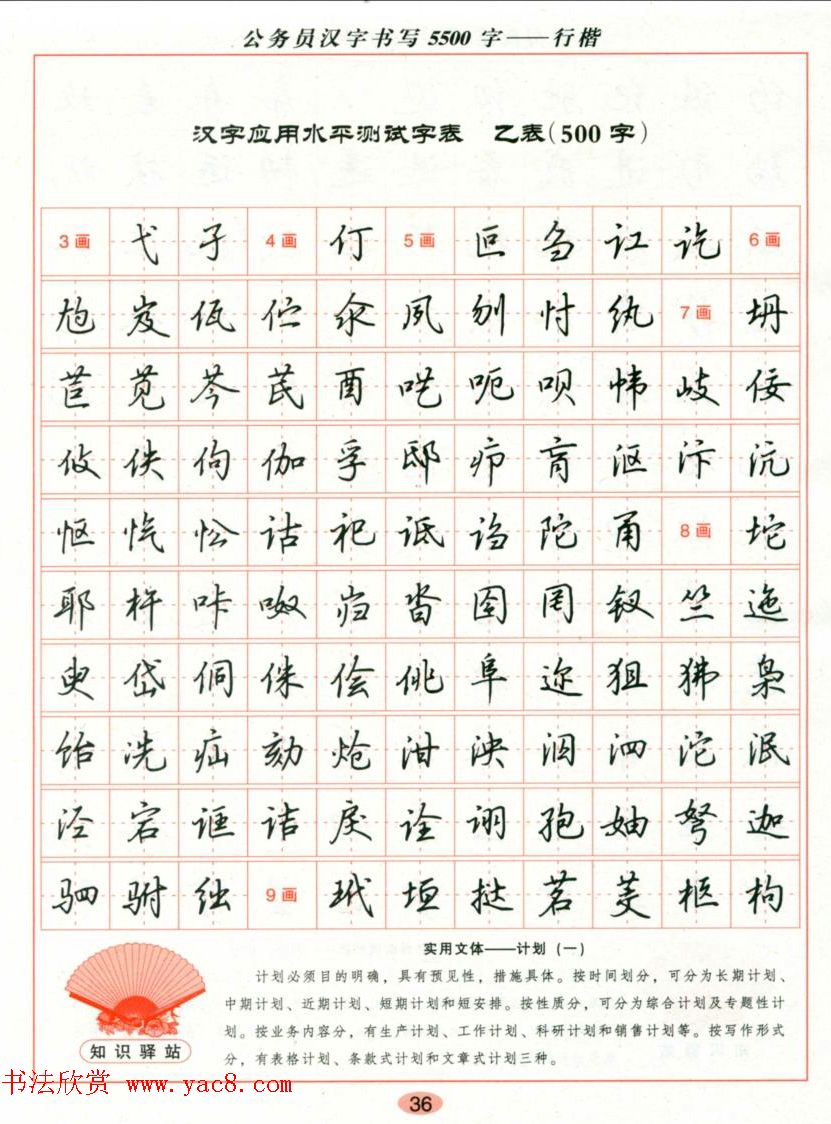 公务员汉字书写5500字——行楷
汉字应用水平测试字表 乙表(500字)
3画 弋 孑 4画 仃 5画 叵 刍 讧 讫 6画
尥 岌 佤 伫 汆 夙 刎 忖 纨 7画 坍
苣 苋 芩 芪 酉 呓 呃 呗 帏 岐 佞
攸 佚 佝 伽 孚 邸 疖 肓 沤 汴 沅
怄 忾 忪 诂 祀 诋 诌 陀 甬 8画 坨
耶 杵 咔 呶 岿 沓 囹 罔 钗 竺 迤
臾 岱 侗 侏 侩 佻 阜 迩 狙 狒 枭
饴 冼 疝 劾 炝 泔 泱 泅 泗 沱 泯
泾 宕 诓 诘 戾 诠 诩 孢 妯 弩 迦
驷 驸 绌 9画 玳 垣 挞 茗 荑 柩 枸
实用文体——计划(一)
计划必须目的明确，具有预见性，措施具体。按时间划分，可分为长期计划、
中期计划、近期计划、短期计划和短安排。按性质分，可分为综合计划及专题性计
划。按业务内容分，有生产计划、工作计划、科研计划和销售计划等。按写作形式
分，有表格计划、条款式计划和文章式计划三种。
知识驿站
书法欣赏 www.yac8.com
36